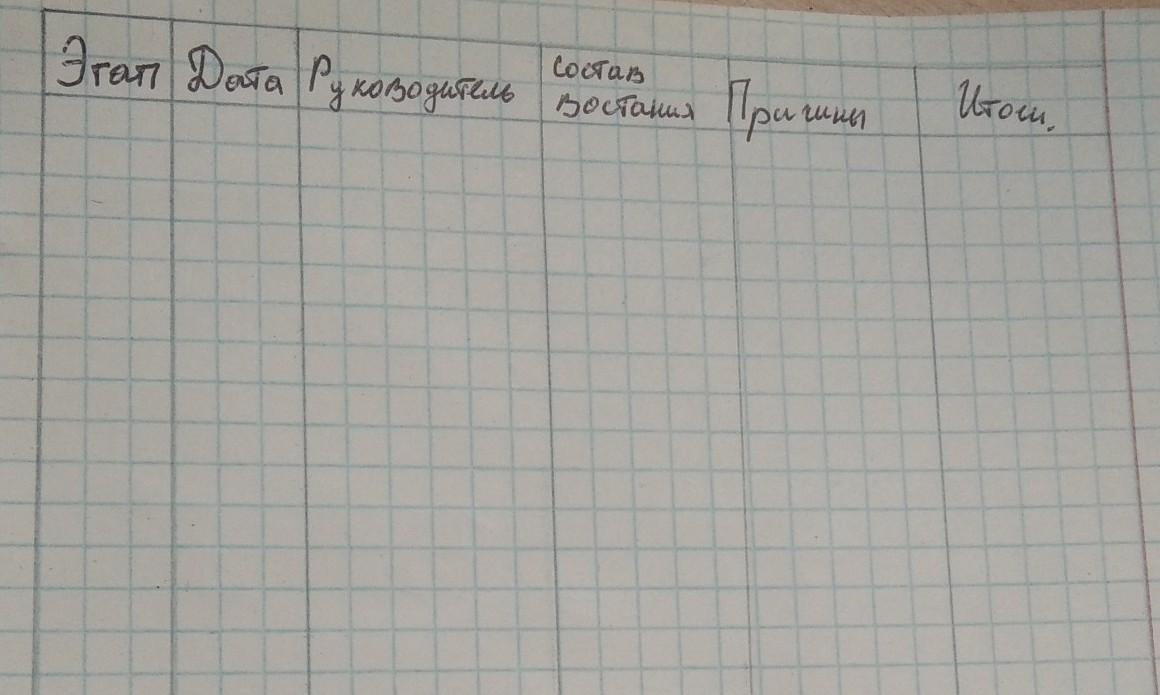 Этап
Дата
Руководитель
состав
востания
Причины
Итоги.